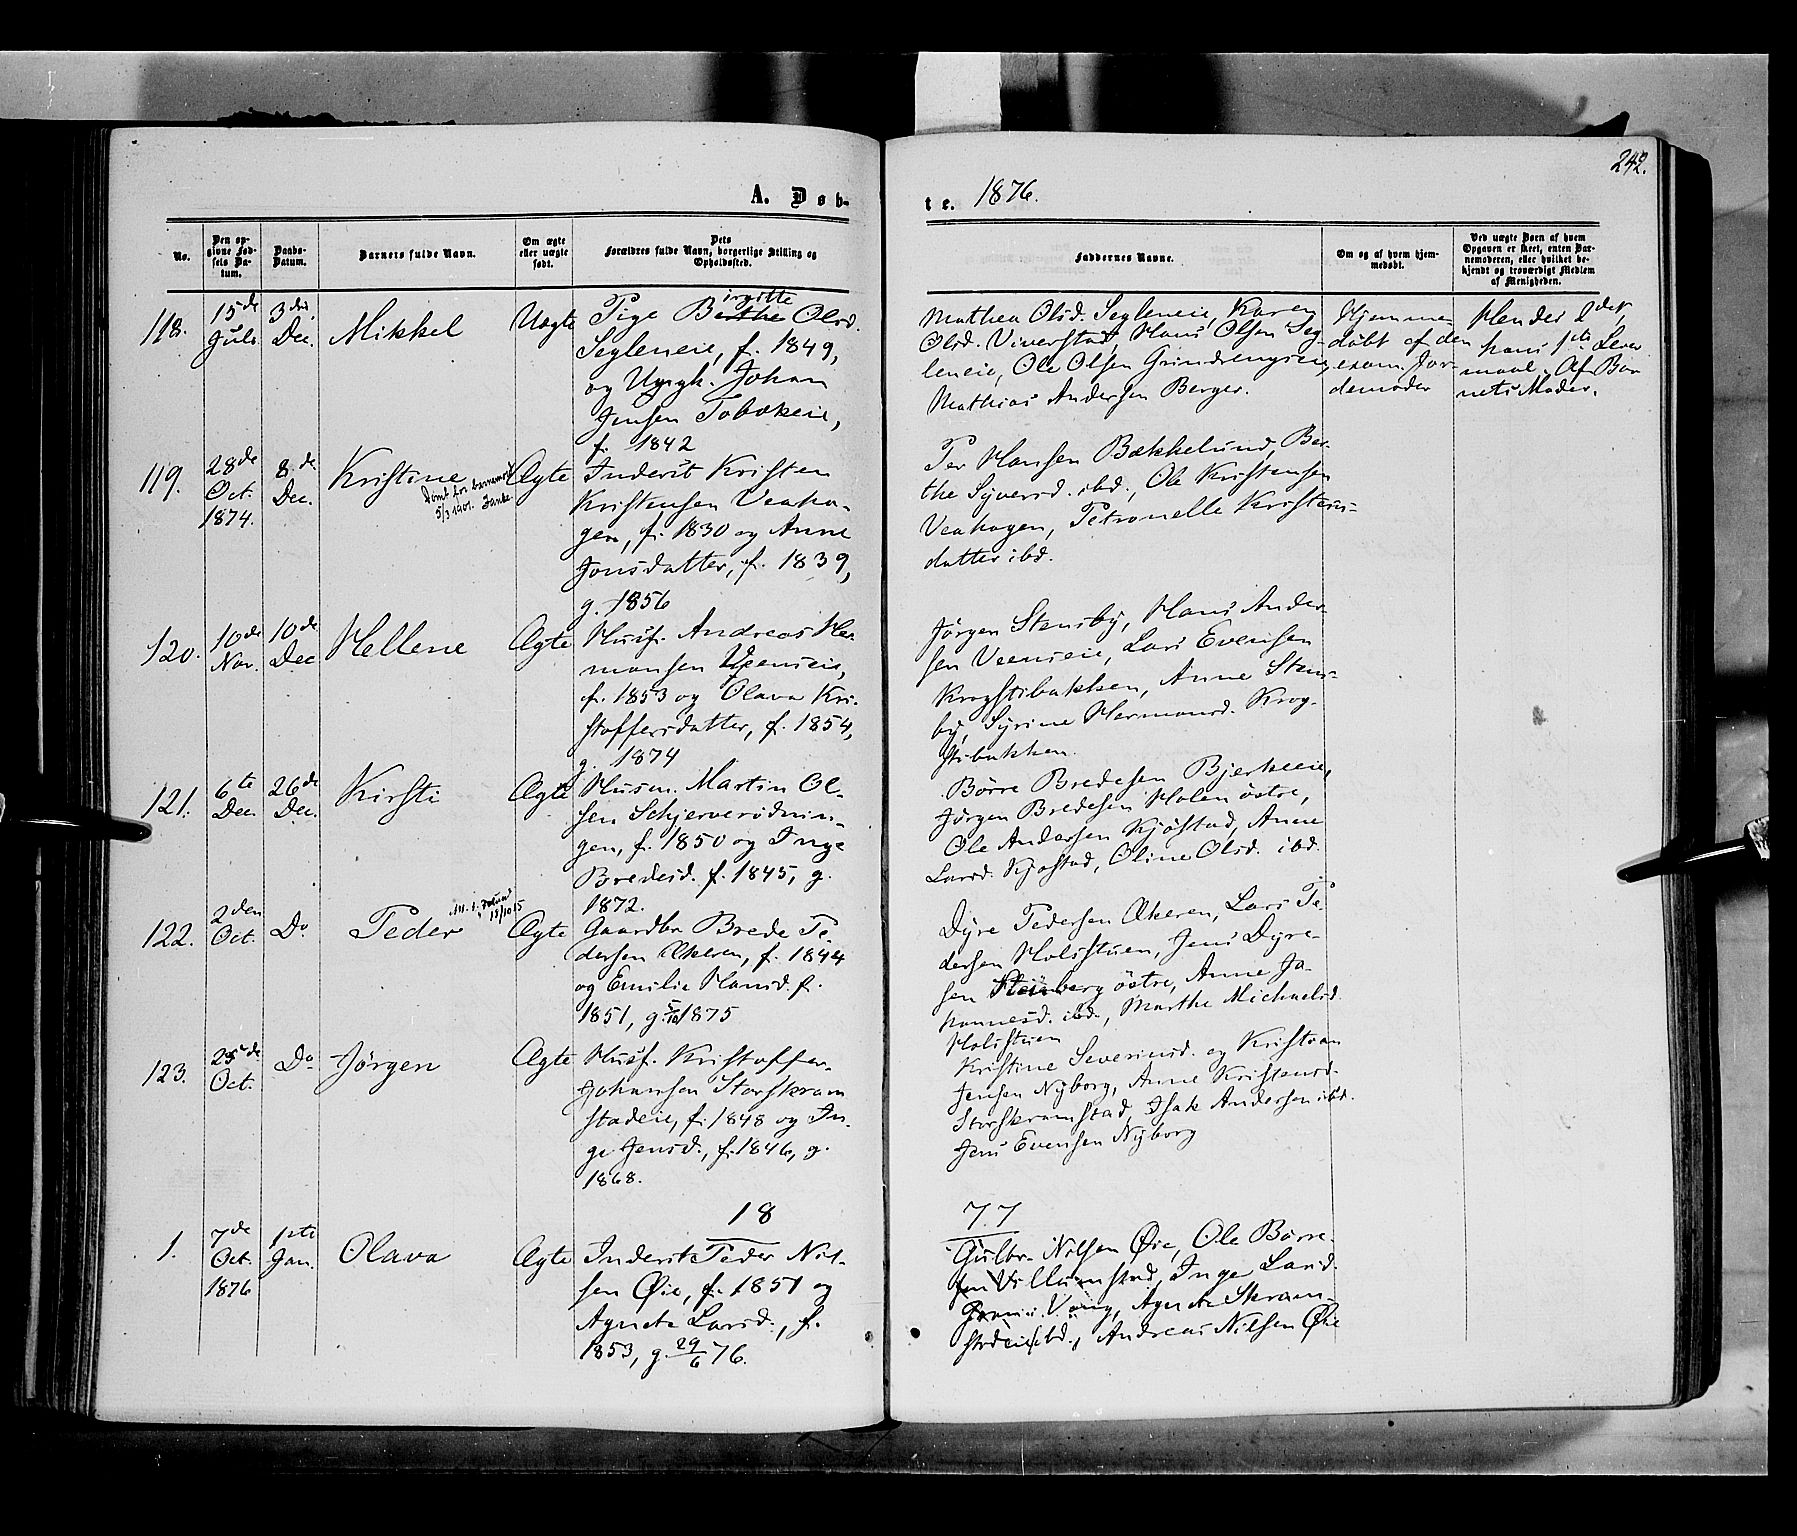 242.
A. Døb-
te. 1876.
No.
Den op-
givne Fød-
sels Da-
tum.
Daabs-
Datum.
Barnets fulde Navn.
Om ægte
eller uægte
født.
Dets
Forældres fulde Navn, borgerlige Stilling og
Opholdssted.
Faddernes Navne.
Om og af hvem hjem-
medøbt.
Ved uægte Børn af hvem
Opgaven er skeet, enten Bar-
nemoderen, eller hvilket be-
kjendt og troværdigt Medlem
af Menigheden.
118.
15de
Juli
3die
Dec.
Mikkel
Uægte
Pige Birgitte Olsd.
Segleneie, f. 1849,
og Ungk. Johan
Jensen Tobakeie,
f. 1842
Mathea Olsd. Segleneie, Karen
Olsd. Viverstad, Hans Olsen Seg-
leneie, Ole Olsen Grindengseie,
Mathias Andersen Berger.
Hjemme-
døbt af den
exam. Jor-
demoder
Hendes 2det,
hans 1ste Leier
maal. Af Bar
nets Moder.
119.
28de
Oct.
1874.
8de
Dec.
Kristine
Dømt for barnemord
5/3 1901.
Ægte
Inderst Kristen
Kristensen Veaha-
gen, f. 1830 og Anne
Jonsdatter, f. 1839,
g. 1856
Per Hansen Bækkelund, Ber-
the Syversd. ibd., Ole Kristensen
Veahagen, Petronelle Kristens-
datter ibd.
120.
10de
Nov.
10de
Dec
Hellene
Ægte
Husf. Andreas Her-
mansen Veenseie,
f. 1853 og Olava Kri-
stoffersdatter, f. 1854,
g. 1874
Jörgen Stensby, Hans Ander-
sen Veenseie, Lars Evensen
Krogstibakken, Anne Stens-
by, Syrine Hermansd. Krog-
stibakken.
121.
6te
Dec
26de
Dec.
Kirsti
Ægte
Husm. Martin Ol-
sen Schjerverödnin-
gen, f. 1850 og Inge
Bredesd. f. 1845, g.
1872.
Börre Bredesen Bjerkeeie,
Jörgen Bredesen Holen östre,
Ole Andersen Kjöstad, Anne
Larsd. Kjöstad, Oline Olsd. ibd.
122.
2den
Oct.
Do
Peder
15/10 15
Ægte
Gaardbr Brede Pe-
dersen Ækeren, f. 1844
og Emilie Hansd. f.
1851, g. 1875
Dyre Pedersen Ækeren, Lars Pe-
dersen Holsstuen, Jens Dyre-
sen Steinberg östre, Anne Jo-
hannesd. ibd., Marthe Michaelsd.
Holsstuen
123.
25de
Oct.
Do
Jörgen
Ægte
Husf. Kristoffer
Johansen Storskram
stadeie, f. 1848 og In-
ge Jensd., f. 1846, g.
1868.
Kristine Severinsd. og Kristian
Jensen Nyborg, Anne Kristensd.
Storskramstad, Isak Andersen ibd.
Jens Evensen Nyborg
18
77
1.
7de
Oct.
1876
1ste
Jan.
Olava
Ægte
Inderst Peder Nil-
sen Øie, f. 1851 og
Agnete Larsd., f.
1853, g. 29/6 76.
Gulbr. Nilsen Øie, Ole Börre-
sen Villumstad, Inger Larsd.
Vang, Agnete Skram-
stadeie ibd., Andreas Nilsen Øie